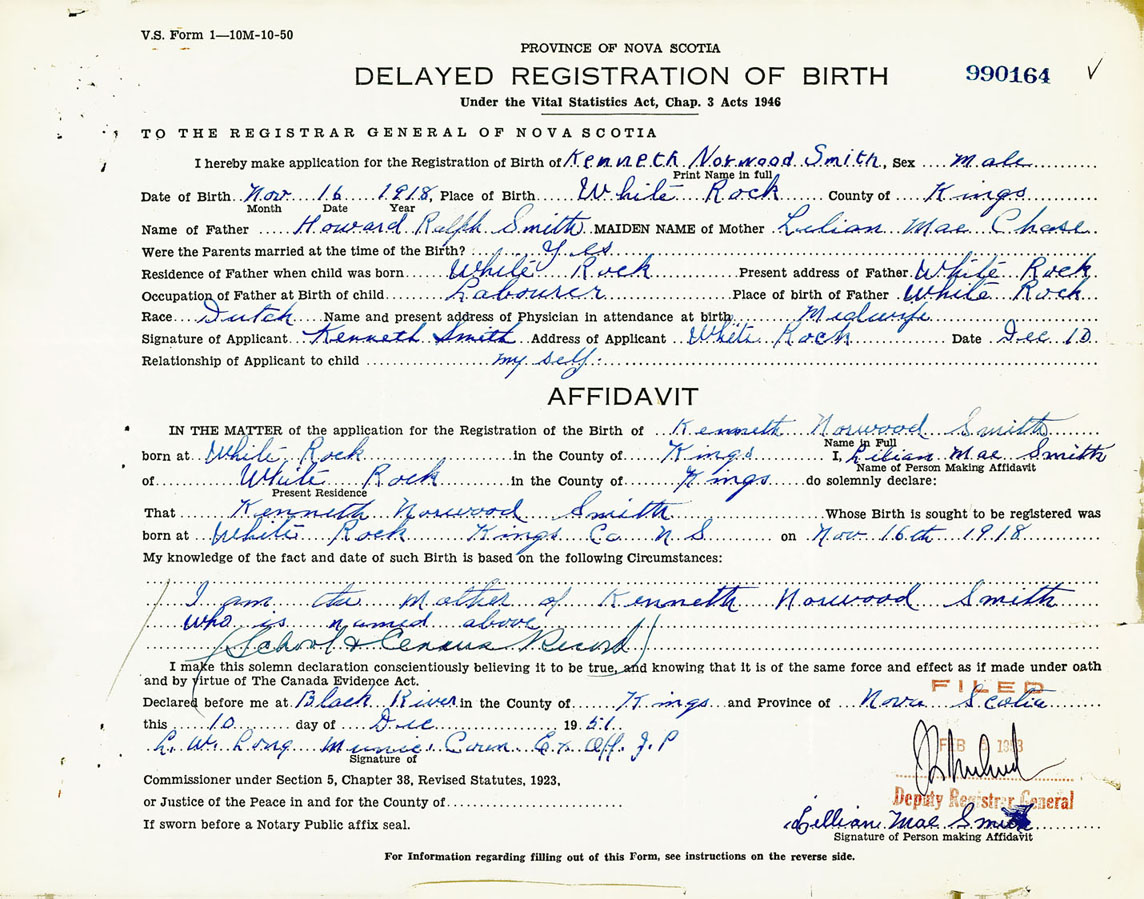 V.S. Form 1—10M-10-50
PROVINCE OF NOVA SCOTIA
DELAYED REGISTRATION OF BIRTH
990164 ✓
Under the Vital Statistics Act, Chap. 3 Acts 1946
TO THE REGISTRAR GENERAL OF NOVA SCOTIA
I hereby make application for the Registration of Birth of Kenneth Norwood Smith, Sex Male
Print Name in full
Date of Birth Nov 16 1918, Place of Birth White Rock County of Kings
Month Date Year
Name of Father Howard Ralph Smith MAIDEN NAME of Mother Lilian Mae Chase
Were the Parents married at the time of the Birth? Yes
Residence of Father when child was born White Rock Present address of Father White Rock
Occupation of Father at Birth of child Labourer Place of birth of Father White Rock
Race Dutch Name and present address of Physician in attendance at birth Midwife
Signature of Applicant Kenneth Smith Address of Applicant White Rock Date Dec 10
Relationship of Applicant to child my self
AFFIDAVIT
IN THE MATTER of the application for the Registration of the Birth of Kenneth Norwood Smith
Name in Full
born at White Rock in the County of Kings I, Lilian Mae Smith
Name of Person Making Affidavit
of White Rock in the County of Kings do solemnly declare:
Present Residence
That Kenneth Norwood Smith Whose Birth is sought to be registered was
born at White Rock Kings Co N S on Nov 16th 1918
My knowledge of the fact and date of such Birth is based on the following Circumstances:
I am the Mother of Kenneth Norwood Smith
who is named above
(School & Census Record)
I make this solemn declaration conscientiously believing it to be true, and knowing that it is of the same force and effect as if made under oath
and by virtue of The Canada Evidence Act.
FILED
Declared before me at Black River in the County of Kings and Province of Nova Scotia
this 10 day of Dec 1951
L. W. Long Munic. Coun Ex Off. J. P
Signature of
FEB
Commissioner under Section 5, Chapter 38, Revised Statutes, 1923,
or Justice of the Peace in and for the County of
Deputy Registrar General
If sworn before a Notary Public affix seal.
Lillian Mae Smith
Signature of Person making Affidavit
For Information regarding filling out of this Form, see instructions on the reverse side.